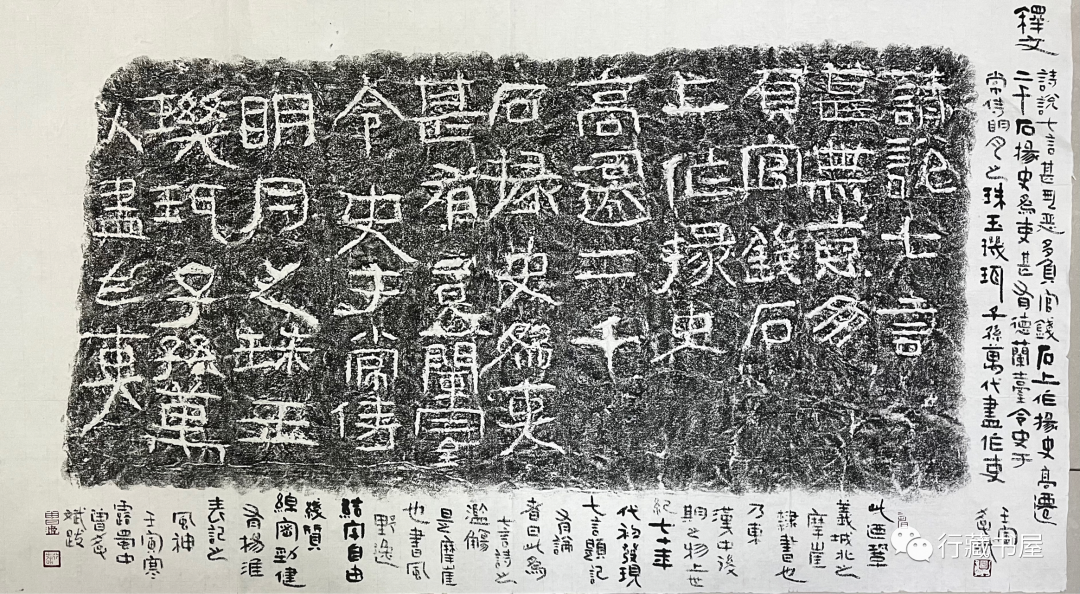 釋文
詩說七言甚無惡多負官錢石上作掾史高遷
二千石掾史為吏甚有德蘭臺令史于
常侍明月之珠玉璣珥子孫萬代盡作吏
壬寅
詩說七言
甚無惡多
負官錢石
上作掾史
高遷二千
石掾史為吏
甚有德蘭臺
令史于常侍
明月之珠玉
璣珥子孫萬
代盡作吏
此通瑩
義城北之
摩崖
隸書也
乃東
漢中後
期之物上世
紀七十年
代初發現
七言題記
有論
者曰此為
七言詩之
濫觴
是摩崖
也書風
野逸
結字自由
綫質
線岡勁健
有楊淮
表記之
風神
壬寅寒
露蜀中
曹
斌跋
行藏书屋